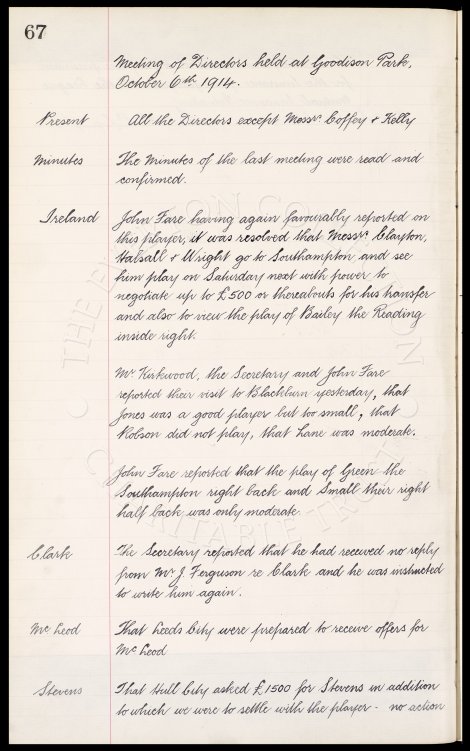 67
Meeting of Directors held at Goodison Park,
October 6th 1914.
Present All the Directors except Messrs Coffey & Kelly
Minutes The Minutes of the last meeting were read and
confirmed.
Ireland John Fare having again favourably reported on
this player, it was resolved that Messrs Clayton,
Halsall & Wright go to Southampton and see
him play on Saturday next with power to
negotiate up to £500 or thereabouts for his transfer
and also to view the play of Bailey the Reading
inside right.
Mr Kirkwood, the Secretary and John Fare
reported their visit to Blackburn yesterday, that
Jones was a good player but too small, that
Robson did not play, that Lane was moderate.
John Fare reported that the play of Green the
Southampton right back and Small their right
half back was only moderate.
Clark The Secretary reported that he had received no reply
from Mr J. Ferguson re Clark and he was instructed
to write him again.
McLeod That Leeds City were prepared to receive offers for
McLeod
Stevens That Hull City asked £1500 for Stevens in addition
to which we were to settle with the player - no action